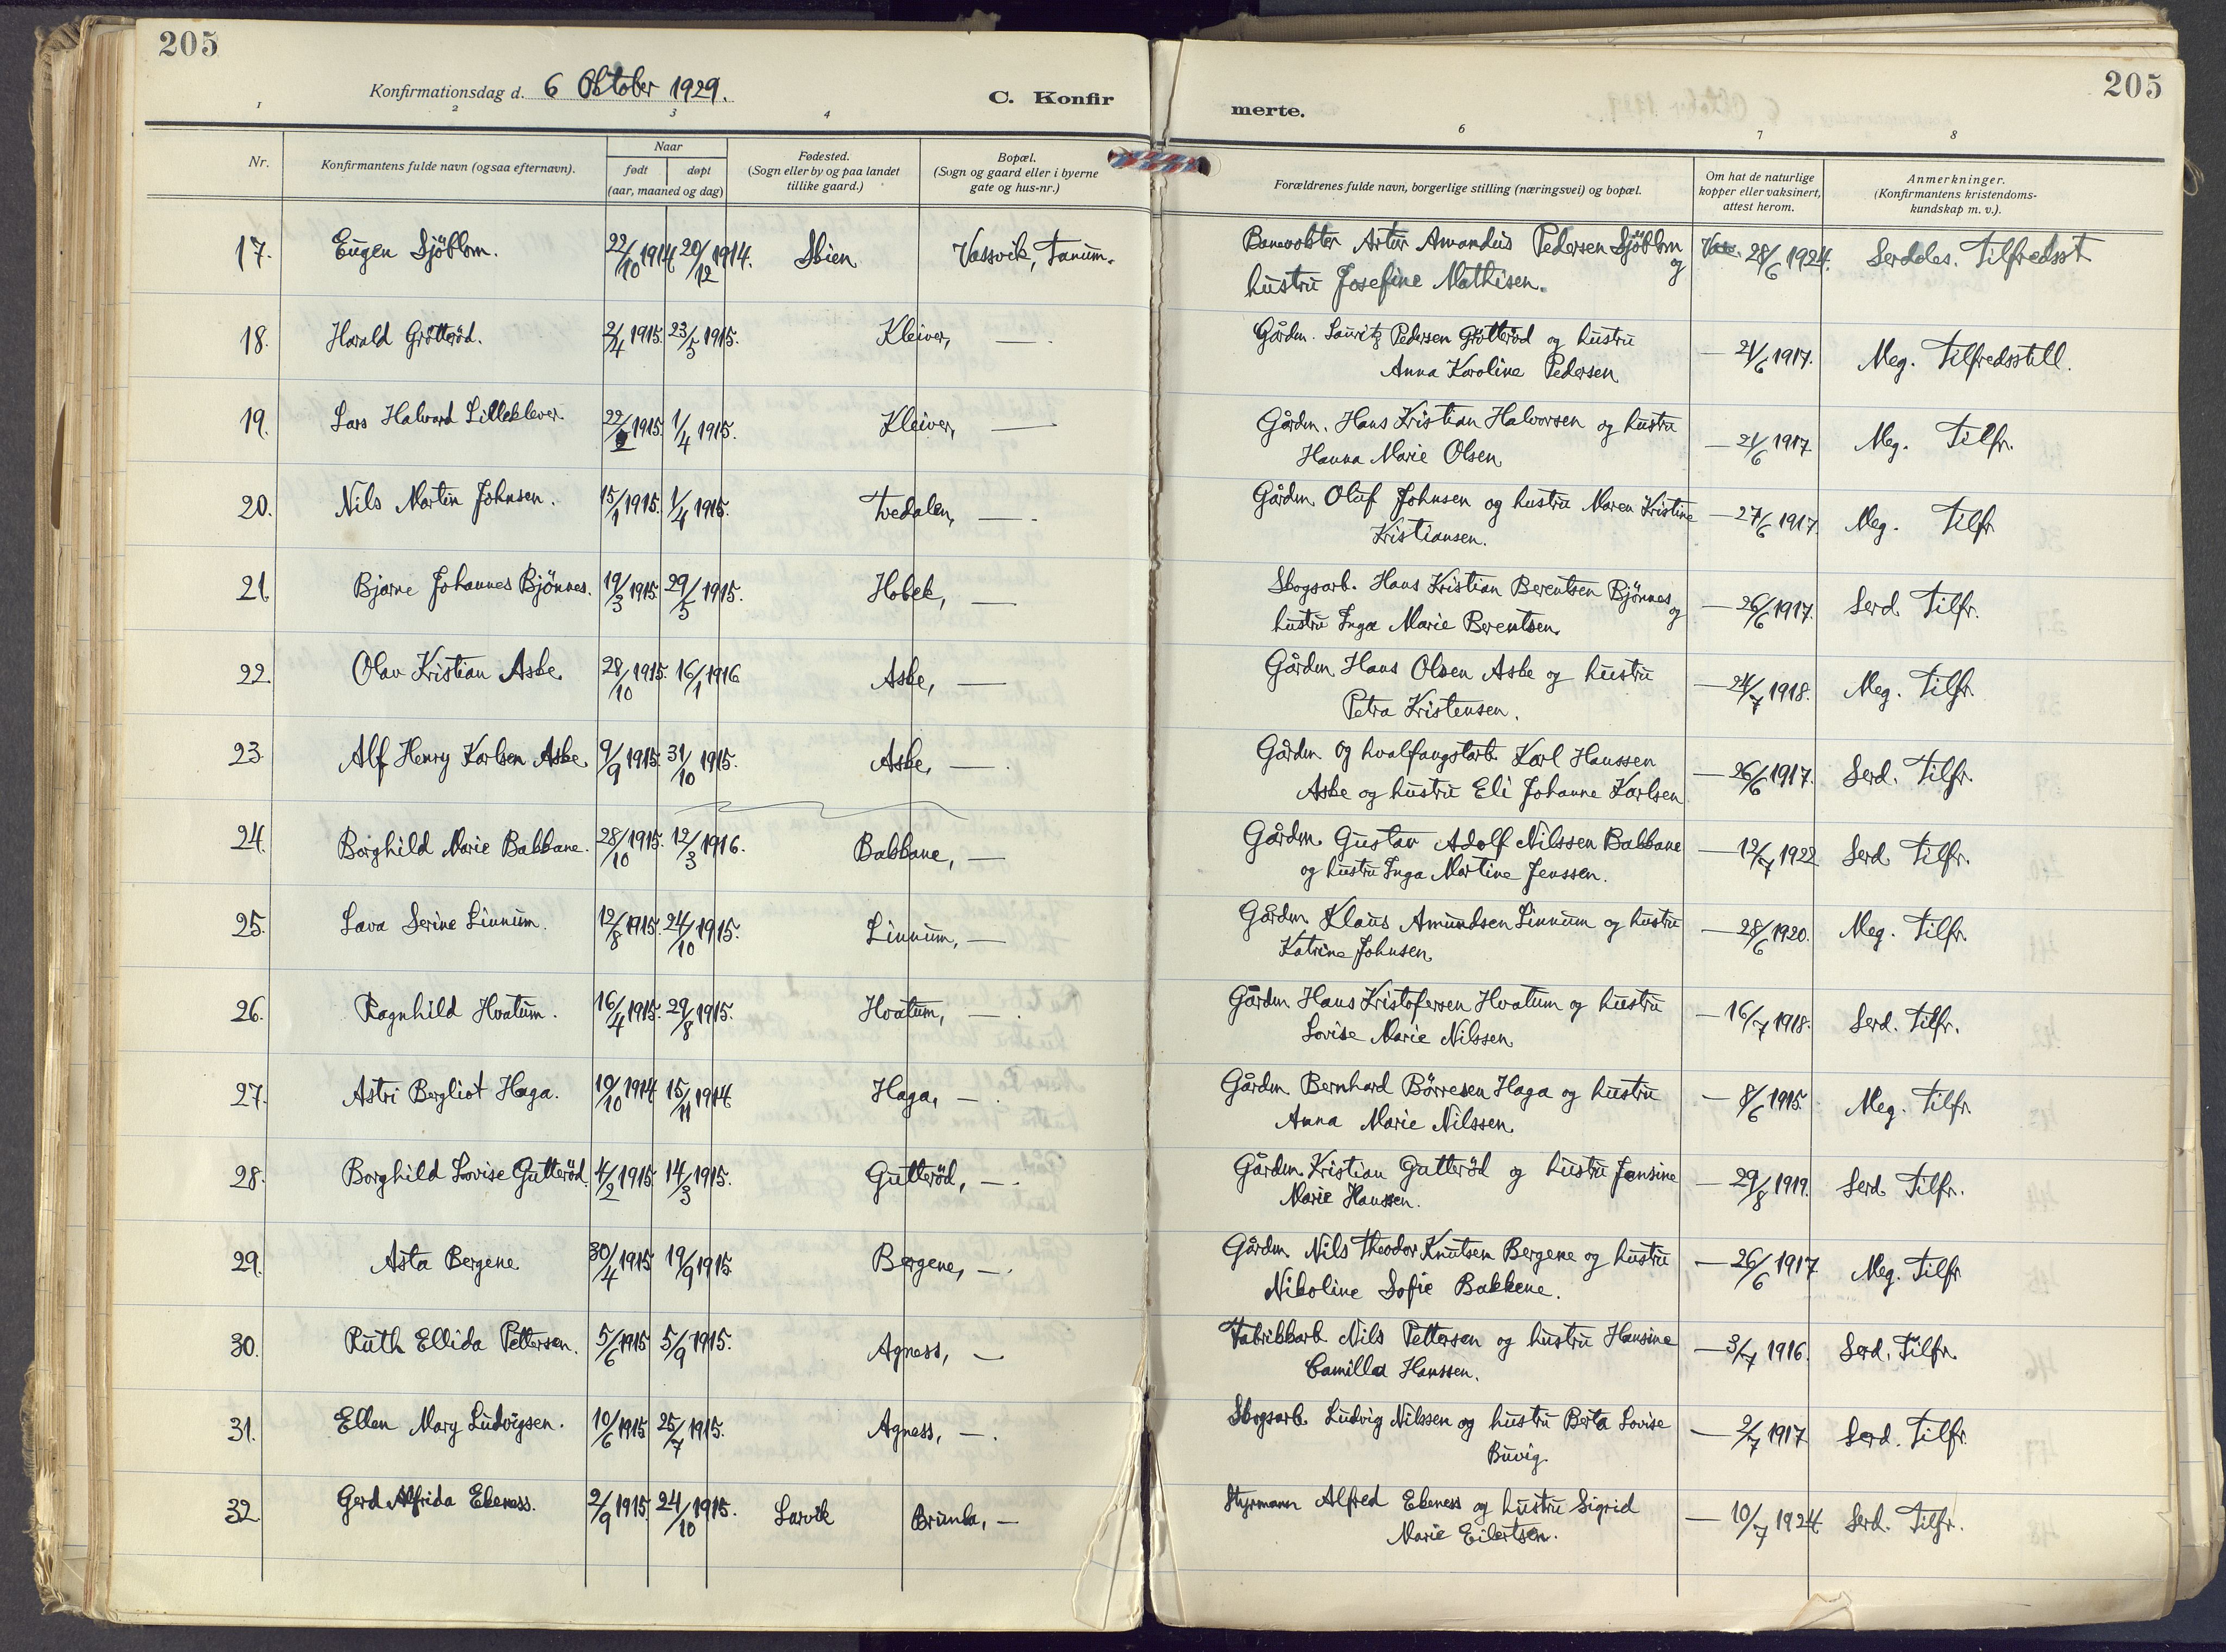 205
205
Konfirmationsdag d. 6 Oktober 1929.
C. Konfir
merte.
1 2 3 4 6 7 8
Nr.
Konfirmantens fulde navn (ogsaa efternavn).
Naar
født døpt
(aar, maaned og dag)
Fødested.
(Sogn eller by og paa landet
tillike gaard.)
Bopæl.
(Sogn og gaard eller i byerne
gate og hus-nr.)
Forældrenes fulde navn, borgerlige stilling (næringsvei) og bopæl.
Om hat de naturlige
kopper eller vaksinert,
attest herom.
Anmerkninger.
(Konfirmantens kristendoms-
kundskap m. v.).
17. Eugen Sjöblom. 22/10 1914 20/12 1914. Skien Vassvik, Tanum. Banevokter Artur Amandus Pedersen Sjöblom og Vac. 28/6 1924. Serdeles. Tilfredsst
hustru Josefine Mathisen.
18. Harald Grötteröd. 2/4 1915. 23/5 1915. Kleiver, — Gårdm. Lauritz Pedersen Grötteröd og hustru — 21/6 1917. Meg. Tilfredsstill.
Anna Karoline Pedersen
19. Lars Halvard Lilleklever. 22/2 1915. 1/4 1915. Kleiver, — Gårdm. Hans Kristian Halvorsen og hustru — 21/6 1917 Meg. Tilfr.
Hanna Marie Olsen
20. Nils Martin Johnsen. 15/1 1915. 1/4 1915. Tvedalen, — Gårdm. Oluf Johnsen og hustru Maren Kristine — 27/6 1917 Meg. Tilfr
Kristiansen.
21. Bjarne Johannes Bjönnes. 19/3 1915 29/5 1915. Hobek, — Skogsarb. Hans Kristian Berentsen Bjönnes og — 26/6 1917. Serd. Tilfr.
hustru Inga Marie Berentsen.
22. Olav Kristian Aske 28/10 1915. 16/1 1916 Aske, — Gårdm. Hans Olsen Aske og hustru — 24/7 1918. Meg. Tilfr.
Petra Kristensen.
23. Alf Henry Karlsen Aske. 9/9 1915. 31/10 1915. Aske, — Gårdm og hvalfangstarb. Karl Hanssen — 26/6 1917. Serd. Tilfr.
Aske og hustru Eli Johanne Karlsen
24. Borghild Marie Bakkane. 28/10 1915. 12/3 1916. Bakkane, — Gårdm. Gustav Adolf Nilssen Bakkane — 12/7 1922 Serd Tilfr.
og hustru Inga Martine Jenssen.
25. Lava Serine Linnum. 12/8 1915. 24/10 1915. Linnum, — Gårdm. Klaus Amundsen Linnum og hustru — 28/6 1920. Meg. Tilfr.
Katrine Johnsen
26. Ragnhild Hvatum. 16/4 1915. 29/8 1915. Hvatum, — Gårdm. Hans Kristofersen Hvatum og hustru — 16/7 1918. Serd. Tilfr.
Lovise Marie Nilssen
27. Astri Bergliot Haga. 10/10 1914 15/11 1914 Haga, — Gårdm. Bernhard Börresen Haga og hustru — 8/6 1915. Meg. Tilfr.
Anna Marie Nilssen
28. Borghild Lovise Gutteröd. 4/2 1915 14/3 1915. Gutteröd, — Gårdm. Kristian Gutteröd og hustru Jensine — 29/8 1919. Serd Tilfr.
Marie Hanssen.
29. Asta Bergene 30/4 1915 19/9 1915. Bergene, — Gårdm. Nils Theodor Knutsen Bergene og hustru — 26/6 1917 Meg. Tilfr
Nikoline Sofie Bakkene.
30. Ruth Ellida Pettersen. 5/6 1915 5/9 1915. Agness, — Fabrikkarb. Nils Pettersen og hustru Hansine — 3/7 1916. Serd. Tilfr.
Camilla Hanssen.
31. Ellen Mary Ludvigsen. 10/6 1915 25/7 1915. Agness, — Skogsarb. Ludvig Nilssen og hustru Berta Lovise — 2/7 1917 Serd. Tilfr.
Buvig.
32. Gerd Alfrida Ekeness. 2/9 1915. 24/10 1915. Larvik Brunla, — Styrmann Alfred Ekeness og hustru Sigrid — 10/7 1924 Serd. Tilfr.
Marie Eilertsen.